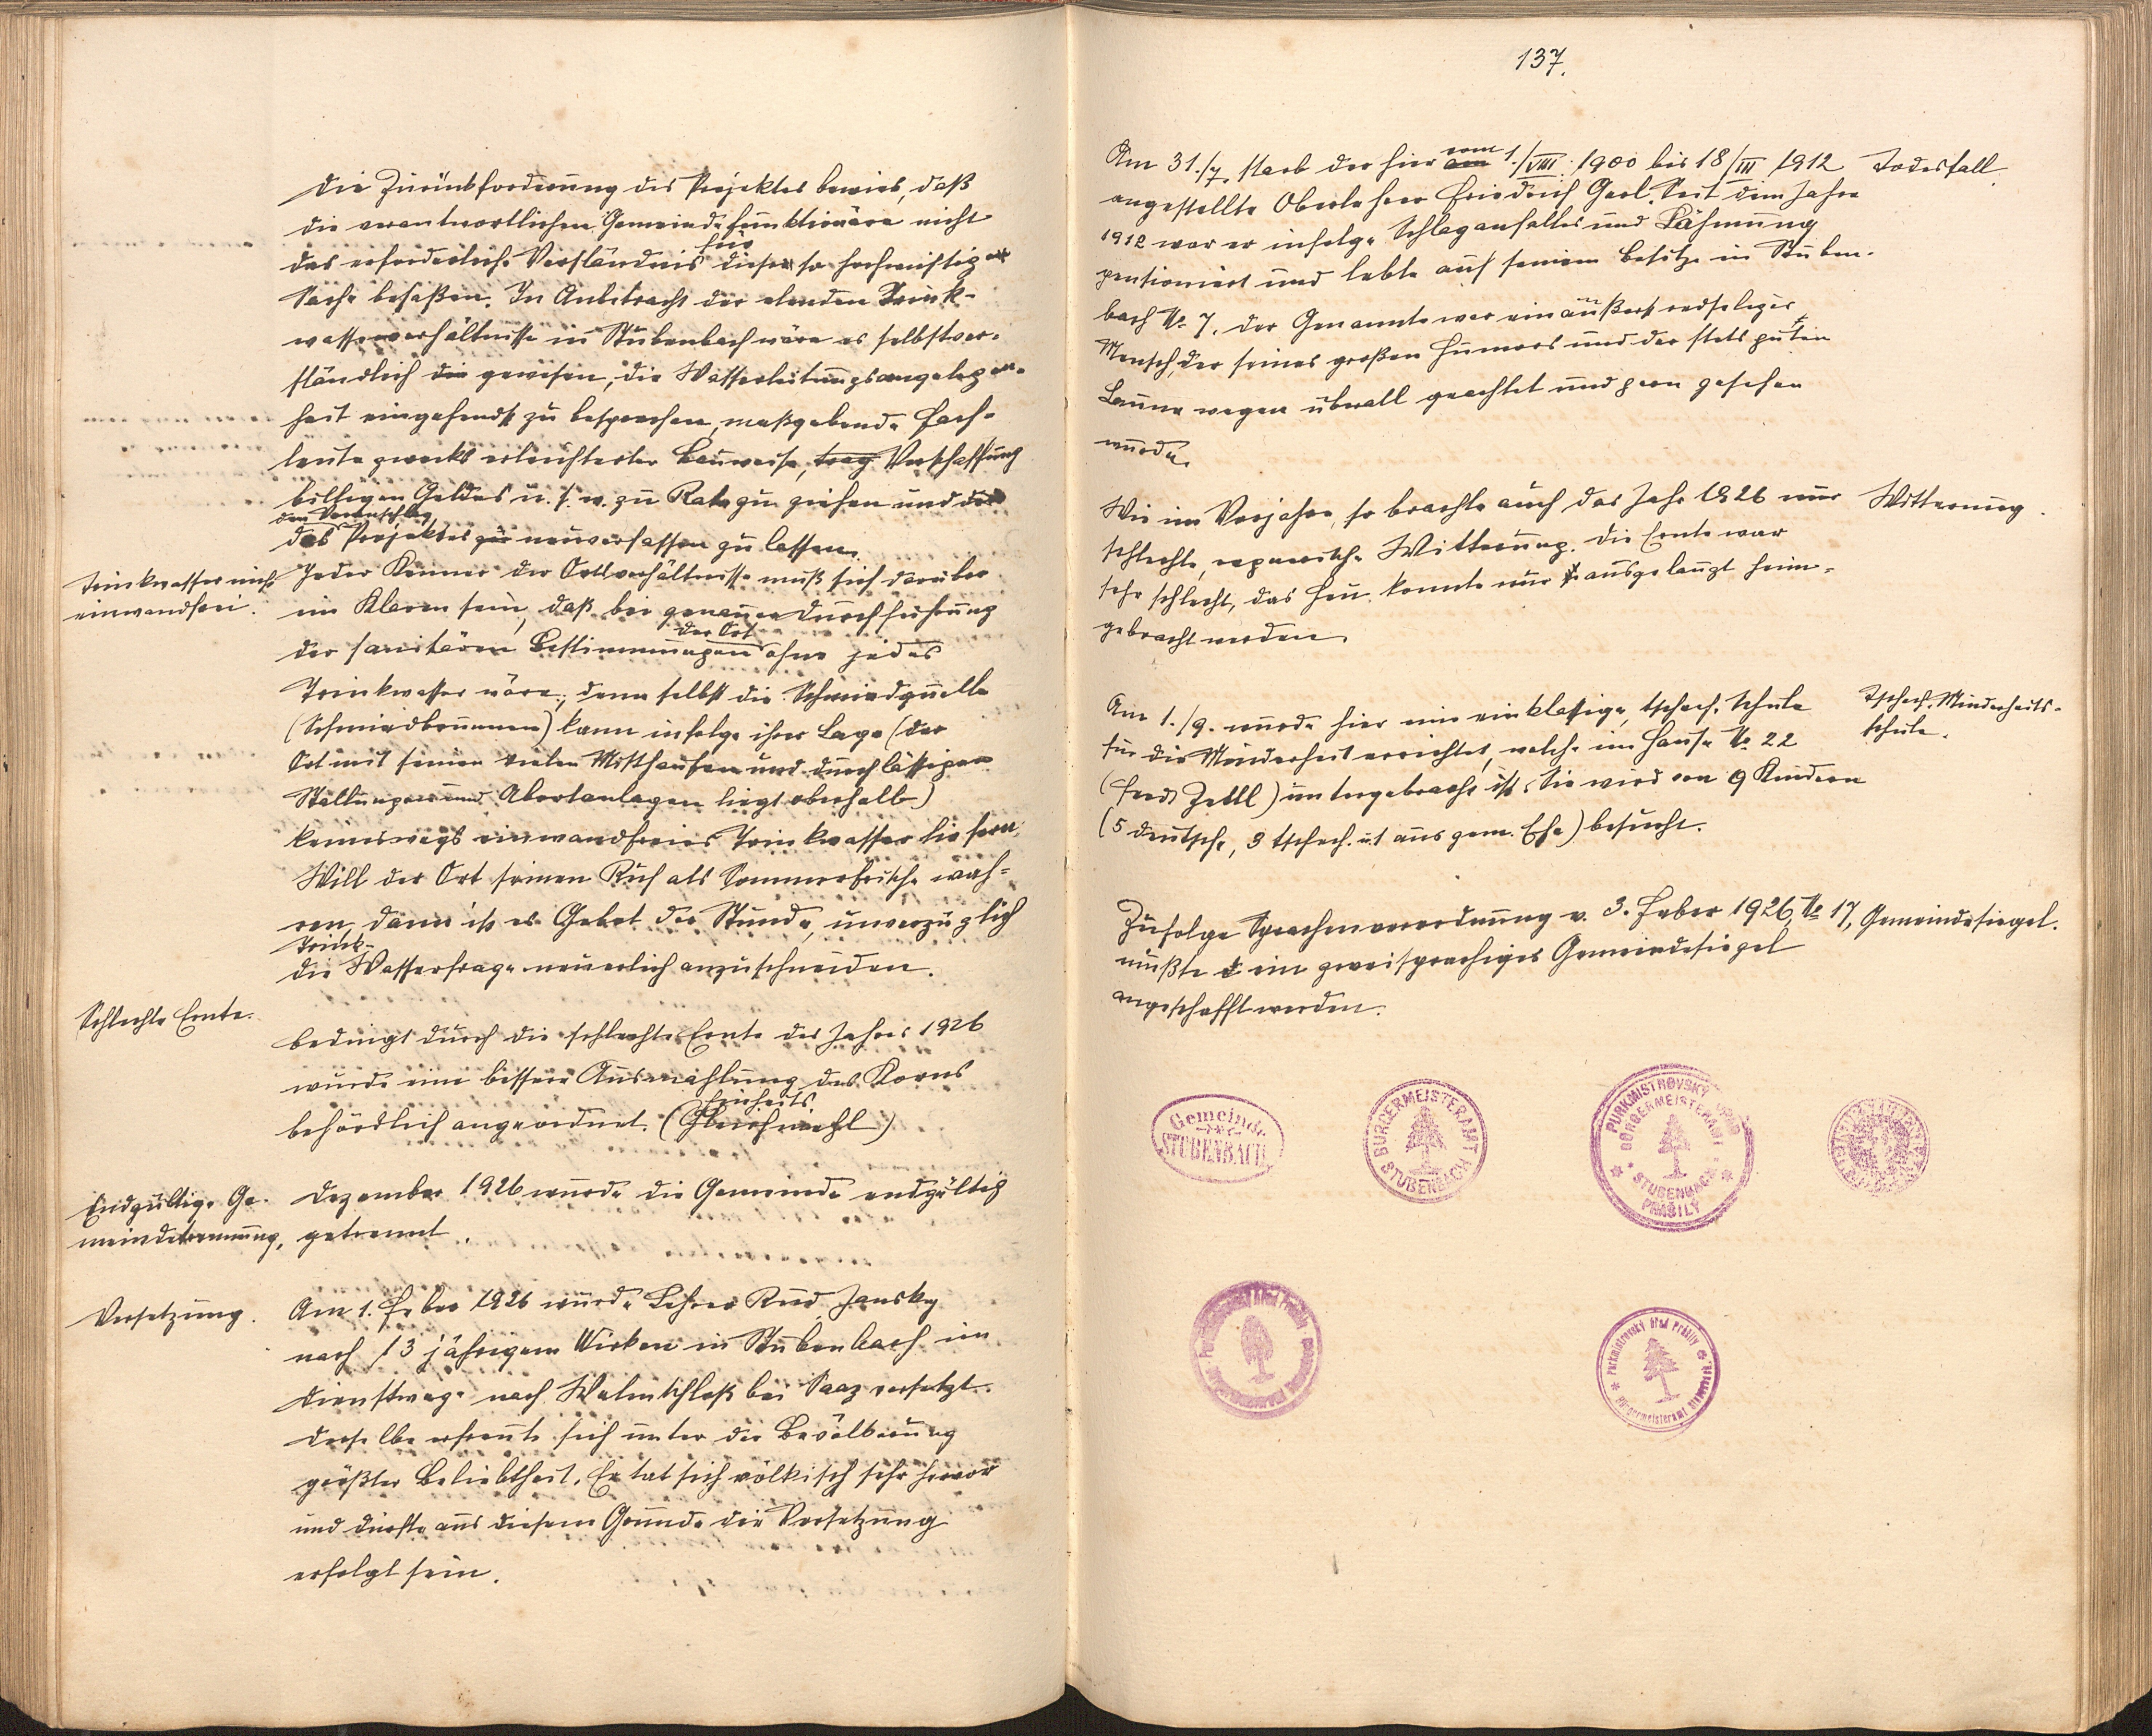 Die Zurückforderung des Projektes bewies, daß
die verantwortlichen Gemeindefunktionäre nicht
das erforderliche Verständnis für diese so hochwichtige
Sache besaßen. In Anbetracht der elenden Trink-
wasserverhältnisse in Stubenbach wäre es selbstver-
ständlich gewesen, die Wasserleitungsangelegen-
heit eingehendst zu besprechen, maßgebende Fach-
leute zwecks erleichterter Bauweise, Verschaffung
billigen Geldes u. s. w. zu Rate zu ziehen und
den Voranschlag
des Projektes neuverfassen zu lassen.
Trinkwasser nicht
einwandfrei.
Jeder Kenner der Ortsverhältnisse muß sich darüber
im Klaren sein, daß bei genauer Durchführung
der sanitären Bestimmungen der Ort ohne jedes
Trinkwasser wäre; denn selbst die Schmiedquelle
(Schmiedbrunnen) kann infolge ihrer Lage (der
Ort mit seinen vielen Misthaufen und durchlässigen
Stallungen und Abortanlagen liegt oberhalb)
keineswegs einwandfreies Trinkwasser liefern.
Will der Ort seinen Ruf als Sommerfrische wah-
ren, dann ist es Gebot der Stunde, unverzüglich
die Trink-Wasserfrage neuerlich anzuschneiden.
Schlechte Ernte.
Bedingt durch die schlechte Ernte des Jahres 1926
wurde eine bessere Ausmahlung des Korns
behördlich angeordnet. (Einheits Gleichmehl)
Endgültige Ge-
meindetrennung.
Dezember 1926 wurde die Gemeinde endgültig
getrennt.
Versetzung.
Am 1. Feber 1926 wurde Lehrer Rud. Jansky
nach 13 jährigem Wirken in Stubenbach im
Dienstwege nach Welmschloß bei Saaz versetzt.
Derselbe erfreute sich unter der Bevölkerung
größter Beliebtheit. Er tat sich völkisch sehr hervor
und dürfte aus diesem Grunde die Versetzung
erfolgt sein.
137.
Am 31./7. starb der hier vom 1./VIII. 1900 bis 18/III 1912
Todesfall.
angestellte Oberlehrer Friedrich Garl. Seit dem Jahre
1912 war er infolge Schlaganfalles und Lähmung
pensioniert und lebte auf seinem Besitze in Stuben-
bach № 7. Der Genannte war ein äußerst redseliger
Mensch, der seines großen Humors und der stets guten
Laune wegen überall geachtet und gern gesehen
wurde.
Wie im Vorjahre, so brachte auch das Jahr 1926 nur
Witterung.
schlechte, regnerische Witterung. Die Ernte war
sehr schlecht, das Heu konnte nur ausgelaugt heim-
gebracht werden.
Am 1./9. wurde hier eine einklassige, tschech. Schule
Tschech. Minderheits-
schule.
für die Minderheit errichtet, welche im Hause № 22
(Ferd. Zettl) untergebracht ist. Sie wird von 9 Kindern
(5 deutsche, 3 tschech. u. 1 aus gem. Ehe) besucht.
Zufolge Sprachenverordnung v. 3. Feber 1926, № 17,
Gemeindesiegel.
mußte ein zweisprachiges Gemeindesiegel
angeschafft werden.
Gemeinde
STUBENBACH
BÜRGERMEISTERAMT
STUBENBACH
PURKMISTROVSKÝ ÚŘAD
BÜRGERMEISTERAMT
STUBENBACH
PRÁŠILY
Purkmistrovský úřad Prášily
Bürgermeisteramt Stubenbach
Purkmistrovský úřad Prášily
Bürgermeisteramt Stubenbach